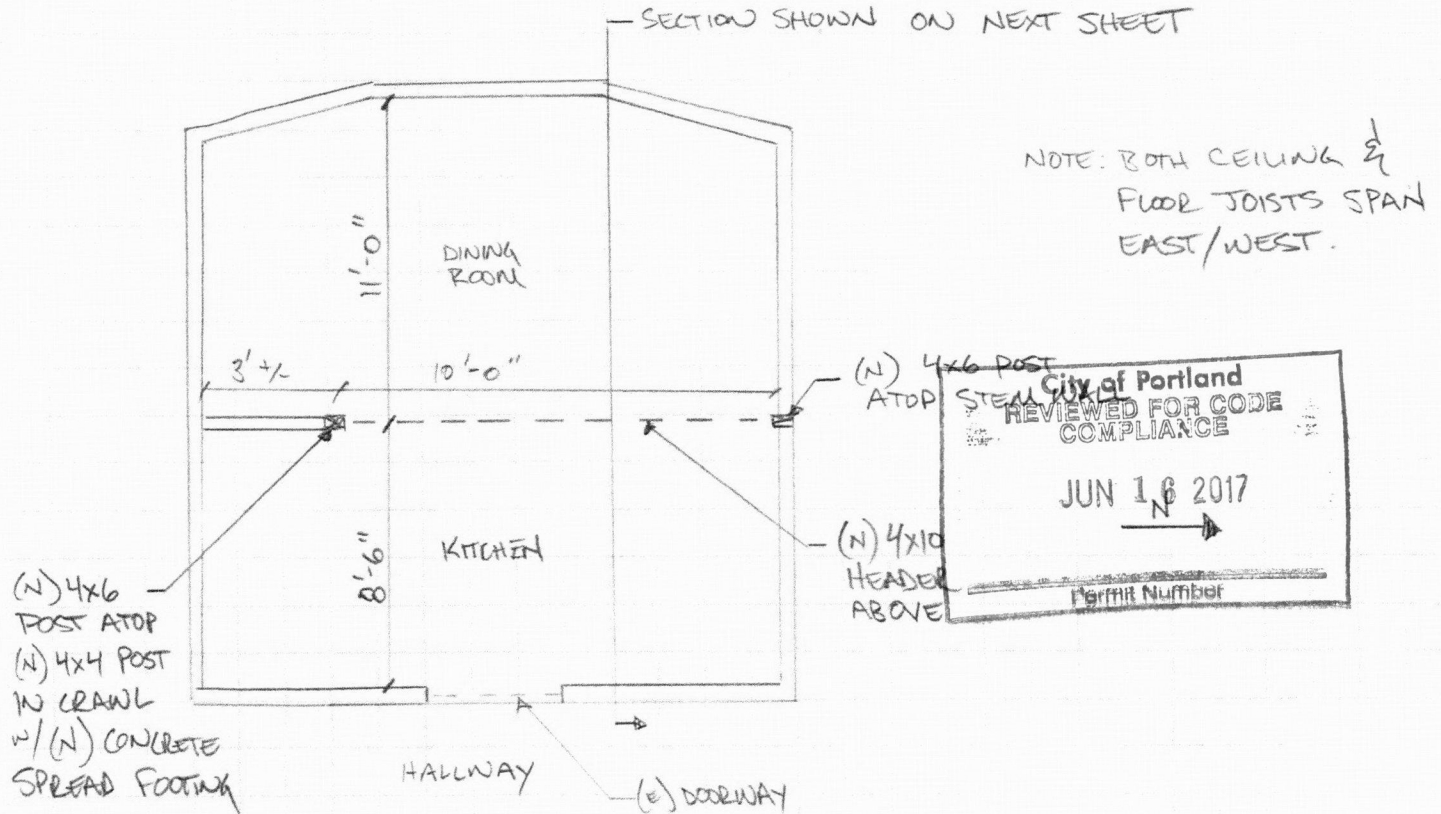 SECTION SHOWN ON NEXT SHEET
NOTE: BOTH CEILING &
FLOOR JOISTS SPAN
EAST/WEST.
11'-0"
DINING
ROOM
3' +/-
10'-0"
(N) 4x6 POST
ATOP STEM WALL
City of Portland
REVIEWED FOR CODE
COMPLIANCE
JUN 16 2017
N
Permit Number
8'-6"
KITCHEN
(N) 4x10
HEADER
ABOVE
(N) 4x6
POST ATOP
(N) 4x4 POST
IN CRAWL
w/ (N) CONCRETE
SPREAD FOOTING
HALLWAY
(E) DOORWAY